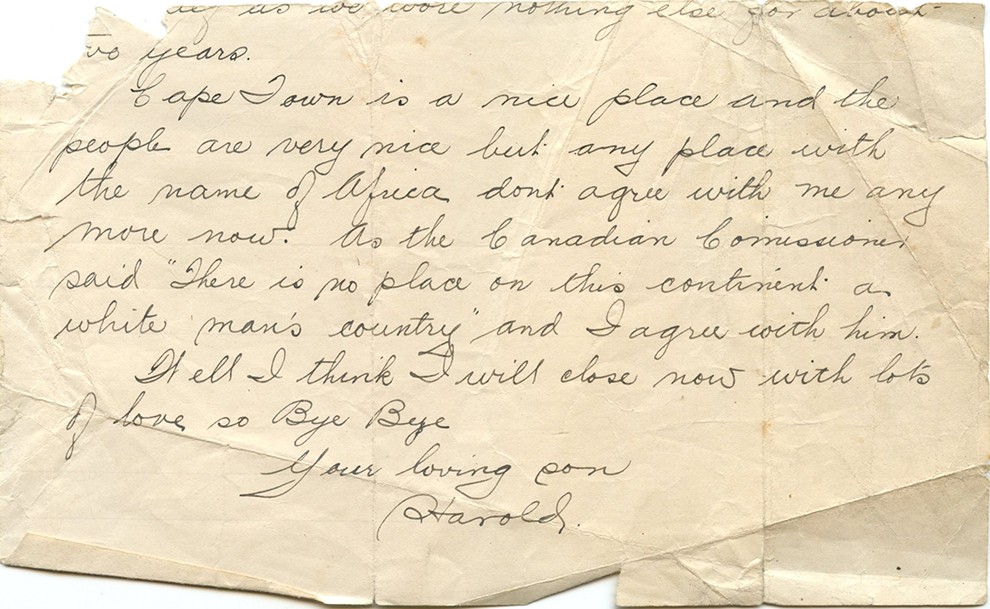 as we wore nothing else for about
two years.
Cape Town is a nice place and the
people are very nice but any place with
the name of Africa dont agree with me any
more now. As the Canadian Comissioner
said "There is no place on this continent a
white man's country" and I agree with him.
Well I think I will close now with lots
of love so Bye Bye
Your loving son
Harold.